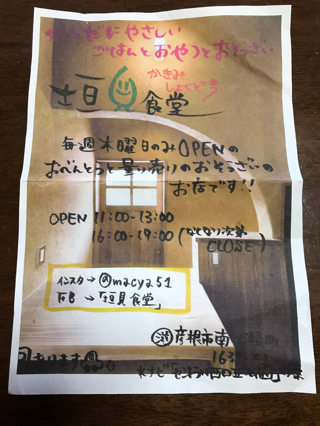 からだにやさしい
ごはんとおやつとおそうざい
かきみ
しょくどう
垣見食堂
毎週木曜日のみOPENの
おべんとうと量り売りのおそうざいの
お店です!!
OPEN 11:00-13:00
16:00-19:00 (なくなり次第
CLOSE)
インスタ→@macya51
FB →「垣見食堂」
彦根市南
あります